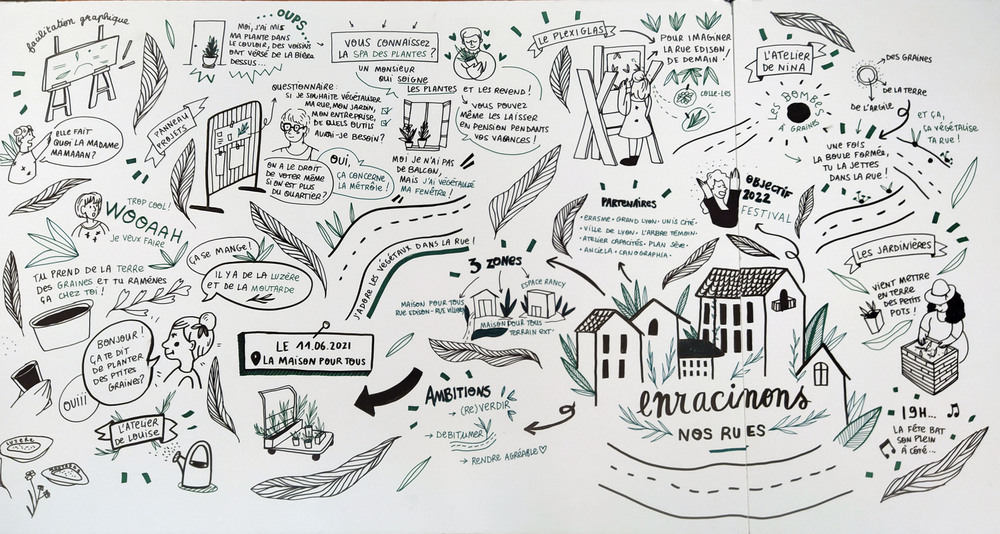 facilitation graphique
...OUPS...
MOI, J'AI MIS
MA PLANTE DANS
LE COULOIR, DES VOISINS
ONT VERSÉ DE LA BIÈRE
DESSUS...
VOUS CONNAISSEZ
LA SPA DES PLANTES ?
UN MONSIEUR
QUI SOIGNE
LES PLANTES ET LES REVEND !
VOUS POUVEZ
MÊME LES LAISSER
EN PENSION PENDANTS
VOS VACANCES !
LE PLEXIGLAS
POUR IMAGINER
LA RUE EDISON
DE DEMAIN !
COLLE-LES
L'ATELIER
DE NINA
LES BOMBES
À GRAINES
DES GRAINES
DE LA TERRE
DE L'ARGILE
ET ÇA,
ÇA VÉGÉTALISE
TA RUE !
UNE FOIS
LA BOULE FORMÉE,
TU LA JETTES
DANS LA RUE !
ELLE FAIT
QUOI LA MADAME
MAMAAAN ?
PANNEAU
PROJETS
QUESTIONNAIRE :
SI JE SOUHAITE VÉGÉTALISER
MA RUE, MON JARDIN,
MON ENTREPRISE,
DE QUELS OUTILS
AURAI-JE BESOIN ?
ON A LE DROIT
DE VOTER MÊME
SI ON EST PLUS
DU QUARTIER ?
OUI,
ÇA CONCERNE
LA MÉTROLE !
MOI JE N'AI PAS
DE BALCON,
MAIS J'AI VÉGÉTALISÉ
MA FENÊTRE !
TROP COOL !
WOOAAH
JE VEUX FAIRE
ÇA SE MANGE !
IL Y A DE LA LUZERE
ET DE LA MOUTARDE
T'AS PREND DE LA TERRE
DES GRAINES ET TU RAMÈNES
ÇA CHEZ TOI !
BONJOUR !
ÇA TE DIT
DE PLANTER
DES PTITES
GRAINES ?
OUIII
L'ATELIER
DE LOUISE
LUZERE
MOUTARDE
J'ADORE LES VÉGÉTAUX DANS LA RUE !
LE 11.06.2021
LA MAISON POUR TOUS
3 ZONES
MAISON POUR TOUS
RUE EDISON - RUE VILLEROY
ESPACE RANCY
MAISON POUR TOUS
TERRAIN EXTR
AMBITIONS
→ (RE)VERDIR
→ DÉBITUMER
→ RENDRE AGRÉABLE ♡
PARTENAIRES
• ERASME • GRAND LYON • UNIS CITÉ •
• VILLE DE LYON • L'ARBRE TÉMOIN •
• ATELIER CAPACITÉS • PLAN SÈVE •
• ANCIELA • CANOGRAPHIA •
OBJECTIF
2022
FESTIVAL
LES JARDINIÈRES
VIENT METTRE
EN TERRE
DES PETITS
POTS !
enracinons
NOS RUES
19H...
LA FÊTE BAT
SON PLEIN
À CÔTÉ...